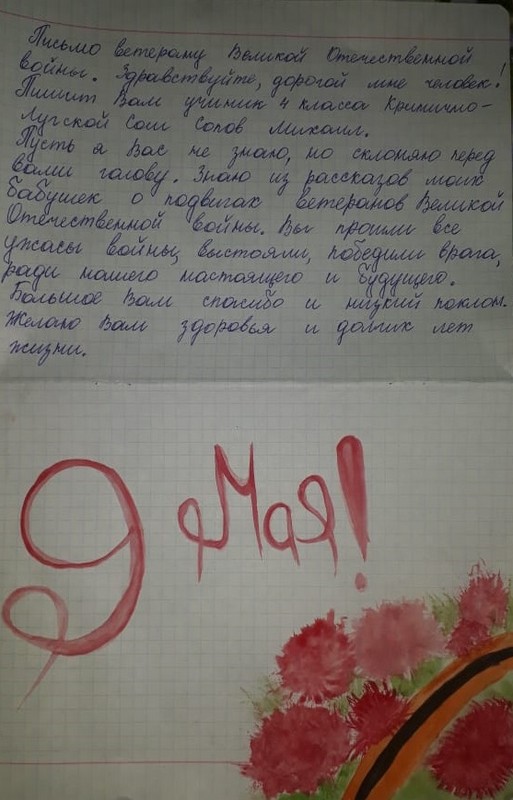 Письмо ветерану Великой Отечественной
войны. Здравствуйте, дорогой мне человек!
Пишит Вам ученик 4 класса Кринично-
Лугской Сош Сопов Михаил.
Пусть я Вас не знаю, но склоняю перед
вами голову. Знаю из рассказов моих
бабушек о подвигах ветеранов Великой
Отечественной войны. Вы прошли все
ужасы войны, выстояли, победили врага,
ради нашего настоящего и будущего.
Большое Вам спасибо и низкий поклон.
Желаю Вам здоровья и долгих лет
жизни.
9 Мая!